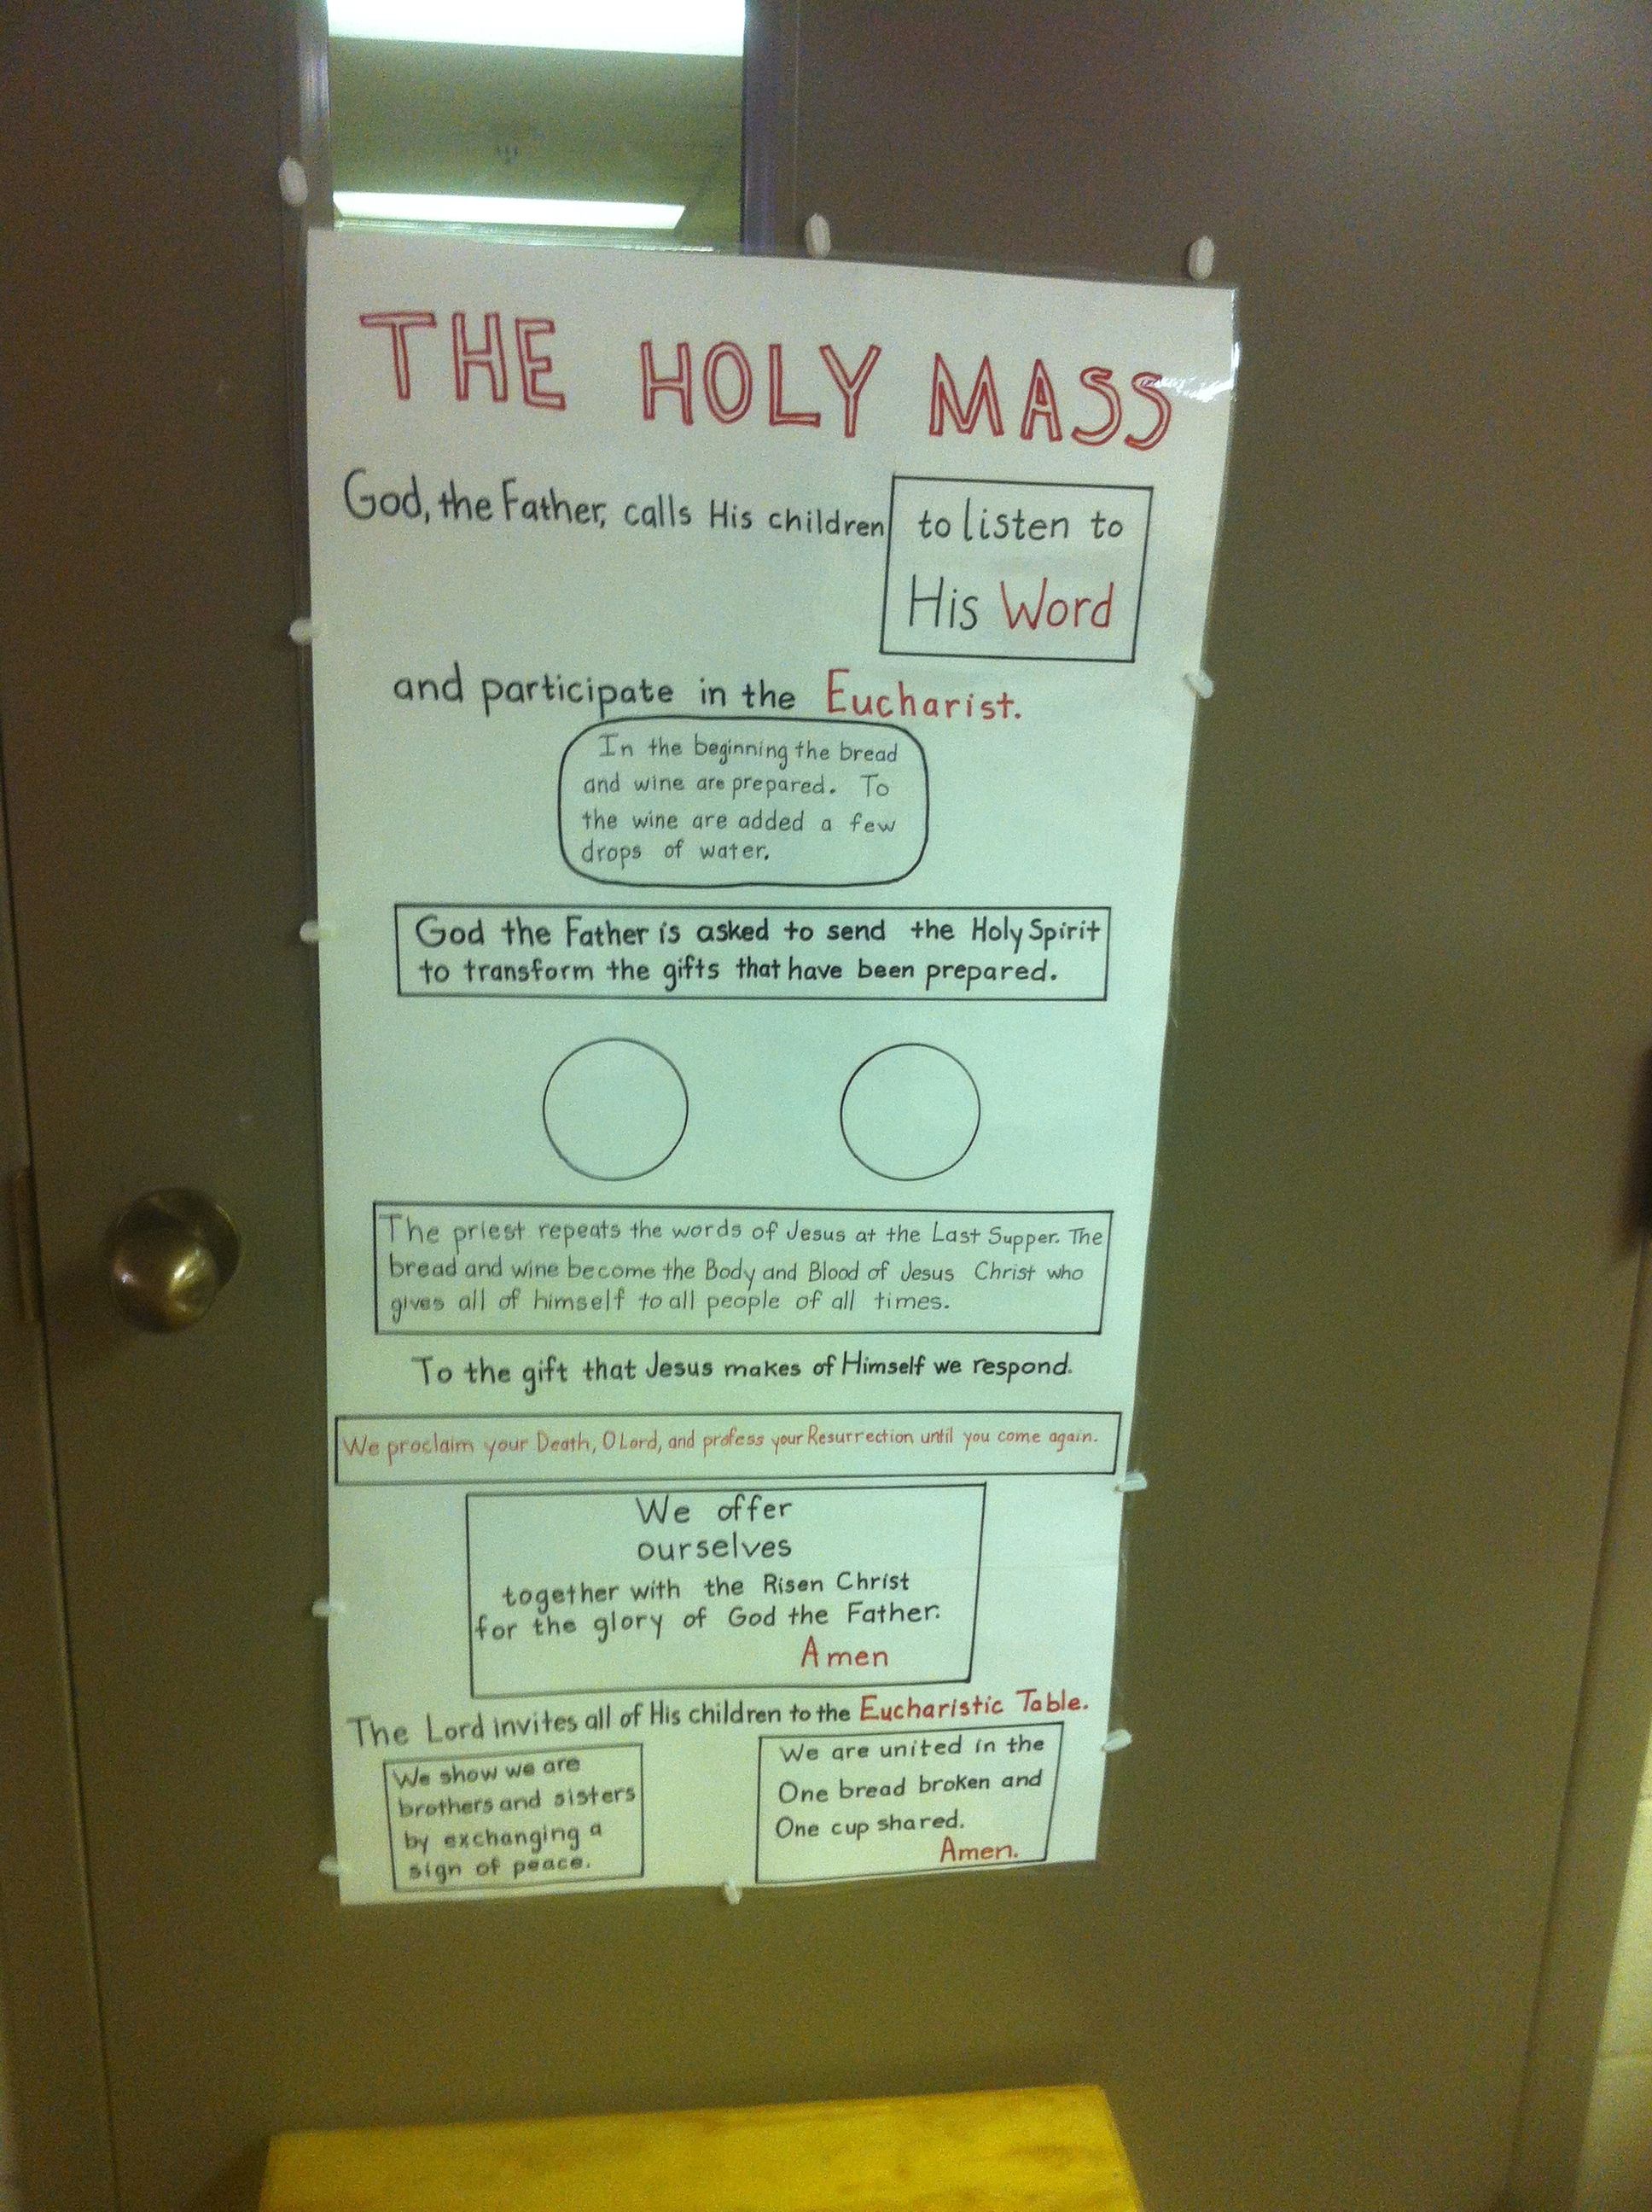 THE HOLY MASS
God, the Father, calls His children to listen to
His Word
and participate in the Eucharist.
In the beginning the bread
and wine are prepared. To
the wine are added a few
drops of water.
God the Father is asked to send the Holy Spirit
to transform the gifts that have been prepared.
The priest repeats the words of Jesus at the Last Supper. The
bread and wine become the Body and Blood of Jesus Christ who
gives all of himself to all people of all times.
To the gift that Jesus makes of Himself we respond.
We proclaim your Death, O Lord, and profess your Resurrection until you come again.
We offer
ourselves
together with the Risen Christ
for the glory of God the Father.
Amen
The Lord invites all of His children to the Eucharistic Table.
We show we are
brothers and sisters
by exchanging a
sign of peace.
We are united in the
One bread broken and
One cup shared.
Amen.